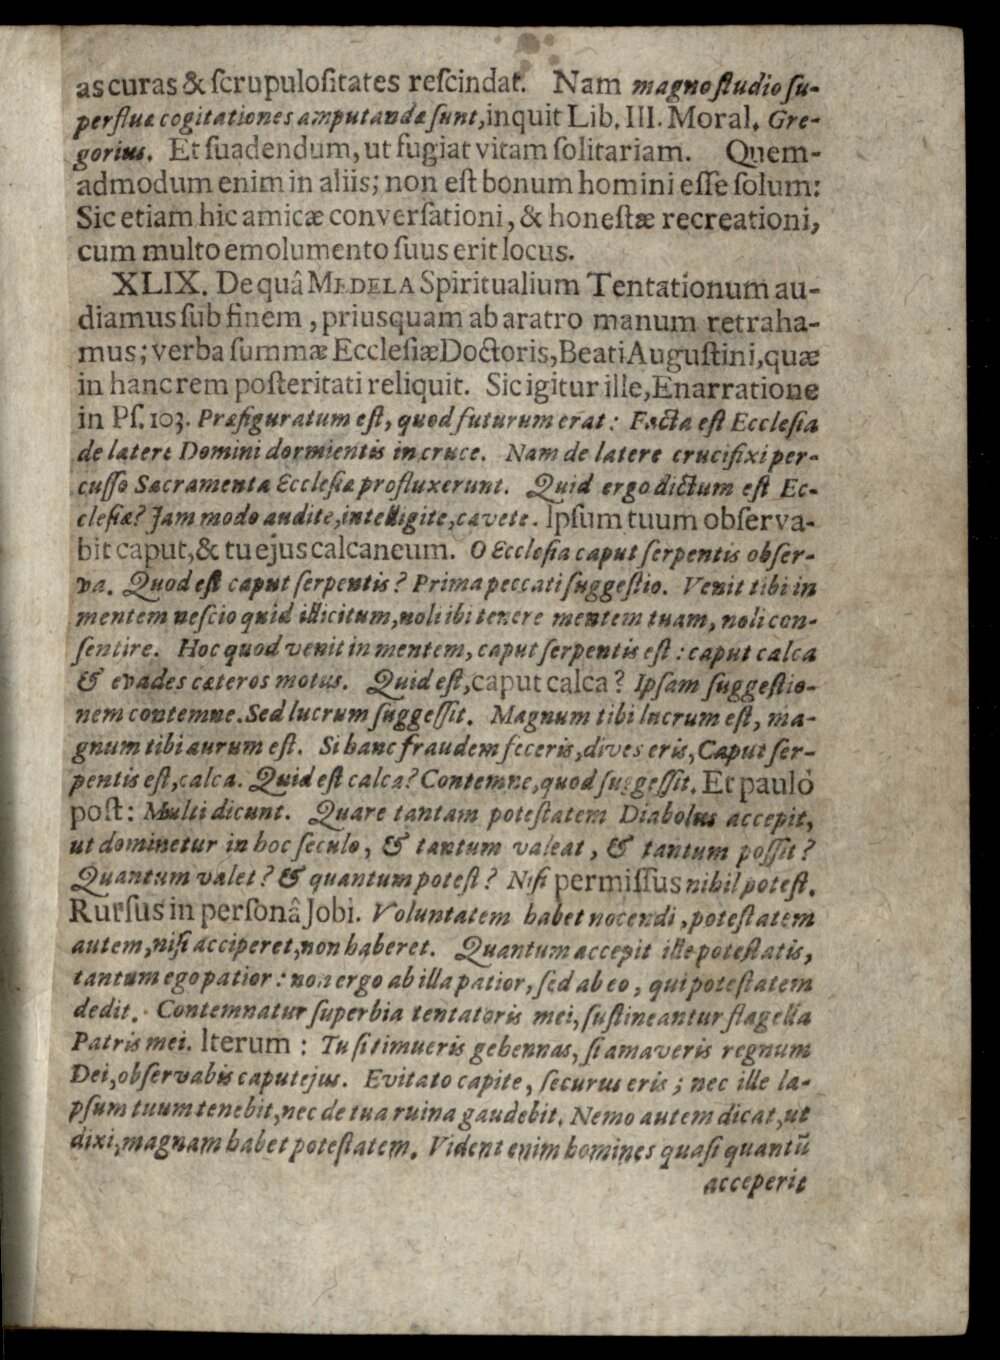 as curas & scrupulositates rescindat. Nam magno studio su-
perfluæ cogitationes amputandæ sunt, inquit Lib. III. Moral. Gre-
gorius. Et suadendum, ut fugiat vitam solitariam. Quem-
admodum enim in aliis; non est bonum homini esse solum:
Sic etiam hic amicæ conversationi, & honestæ recreationi,
cum multo emolumento suus erit locus.
XLIX. De quâ MEDELA Spiritualium Tentationum au-
diamus sub finem, priusquam ab aratro manum retraha-
mus; verba summæ Ecclesiæ Doctoris, Beati Augustini, quæ
in hanc rem posteritati reliquit. Sic igitur ille, Enarratione
in Ps. 103. Præfiguratum est, quod futurum erat: Facta est Ecclesia
de latere Domini dormientis in cruce. Nam de latere crucifixi per-
cusso Sacramenta Ecclesiæ profluxerunt. Quid ergo dictum est Ec-
clesiæ? Jam modo audite, intelligite, cavete. Ipsum tuum observa-
bit caput, & tu ejus calcaneum. O Ecclesia caput serpentis obser-
va. Quod est caput serpentis? Prima peccati suggestio. Venit tibi in
mentem nescio quid illicitum, noli ibi tenere mentem tuam, noli con-
sentire. Hoc quod venit in mentem, caput serpentis est: caput calca
& evades cæteros motus. Quid est, caput calca? Ipsam suggestio-
nem contemne. Sed lucrum suggessit. Magnum tibi lucrum est, ma-
gnum tibi aurum est. Si hanc fraudem feceris, dives eris, Caput ser-
pentis est, calca. Quid est calca? Contemne, quod suggessit. Et paulò
post: Multi dicunt. Quare tantam potestatem Diabolus accepit,
ut dominetur in hoc seculo, & tantum valeat, & tantum possit?
Quantum valet? & quantum potest? Nisi permissus nihil potest.
Rursus in personâ Jobi. Voluntatem habet nocendi, potestatem
autem, nisi acciperet, non haberet. Quantum accepit ille potestatis,
tantum ego patior: non ergo ab illa patior, sed ab eo, qui potestatem
dedit. Contemnatur superbia tentatoris mei, sustineantur flagella
Patris mei. Iterum: Tu si timueris gehennas, si amaveris regnum
Dei, observabis caput ejus. Evitato capite, securus eris; nec ille la-
psum tuum tenebit, nec de tua ruina gaudebit. Nemo autem dicat, ut
dixi, magnam habet potestatem. Vident enim homines quasi quantũ
acceperit